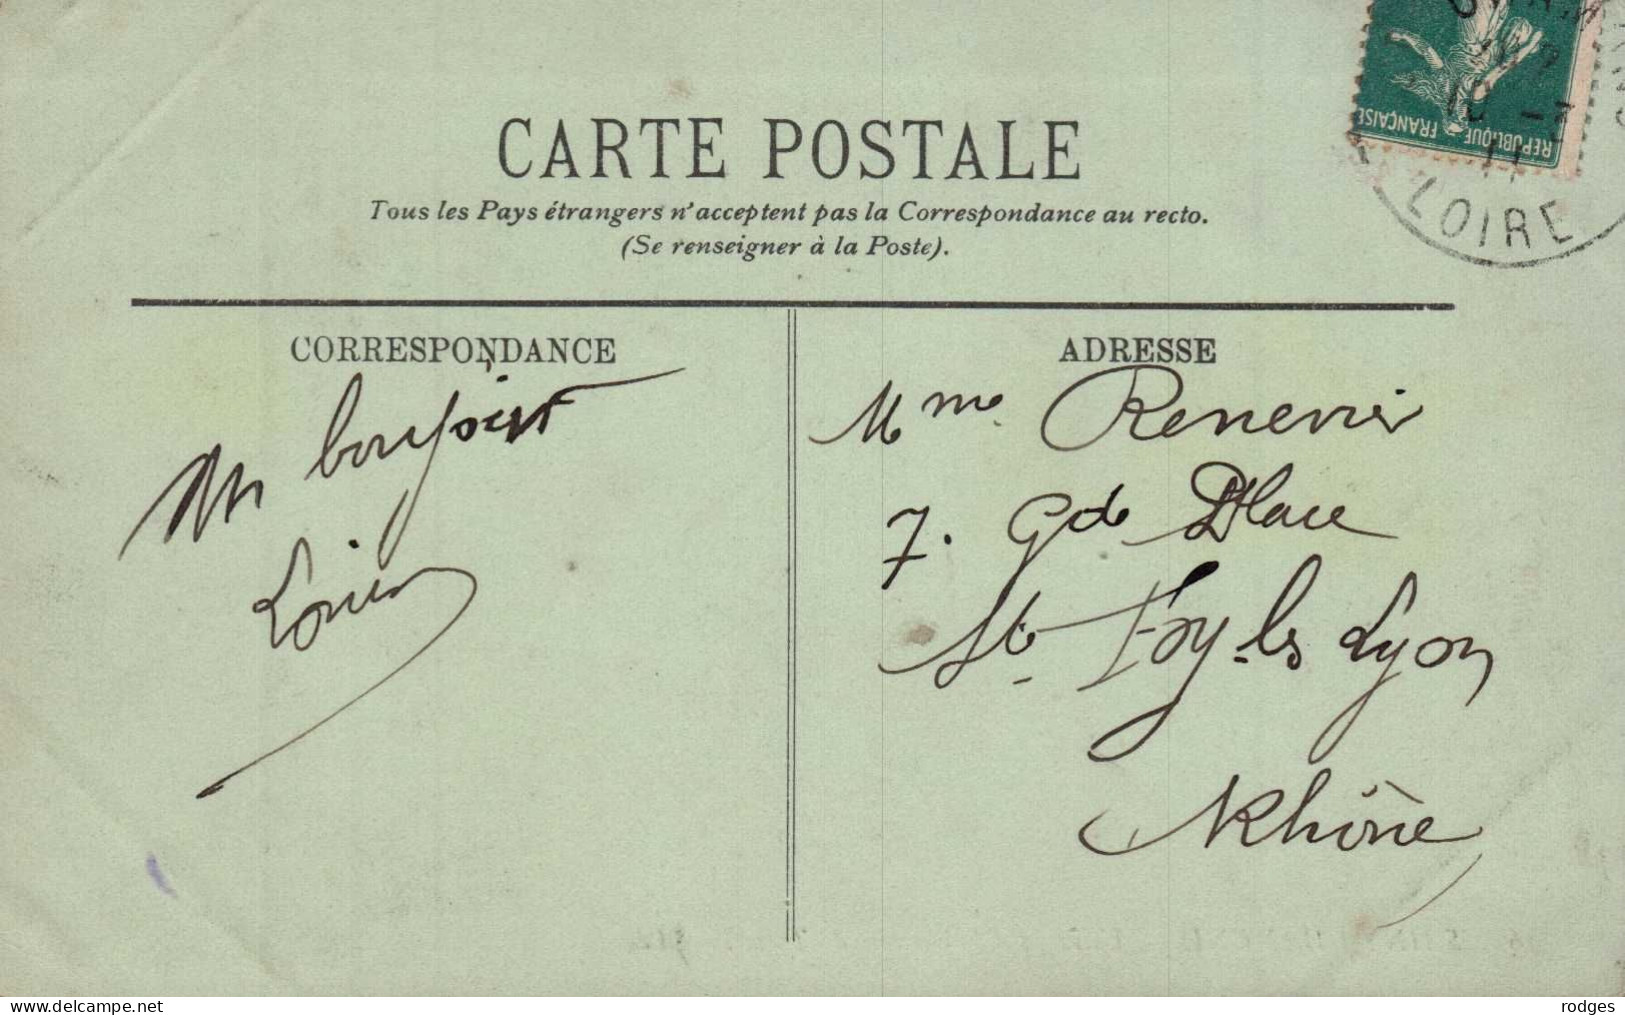 CARTE POSTALE
Tous les Pays étrangers n'acceptent pas la Correspondance au recto.
(Se renseigner à la Poste).
RÉPUBLIQUE FRANÇAISE
LOIRE
CORRESPONDANCE
Un bonjour
Louis
ADRESSE
Mme Renevier
7. Gde Place
Ste Foy-les Lyon
Rhône
delcampe.net
rodges